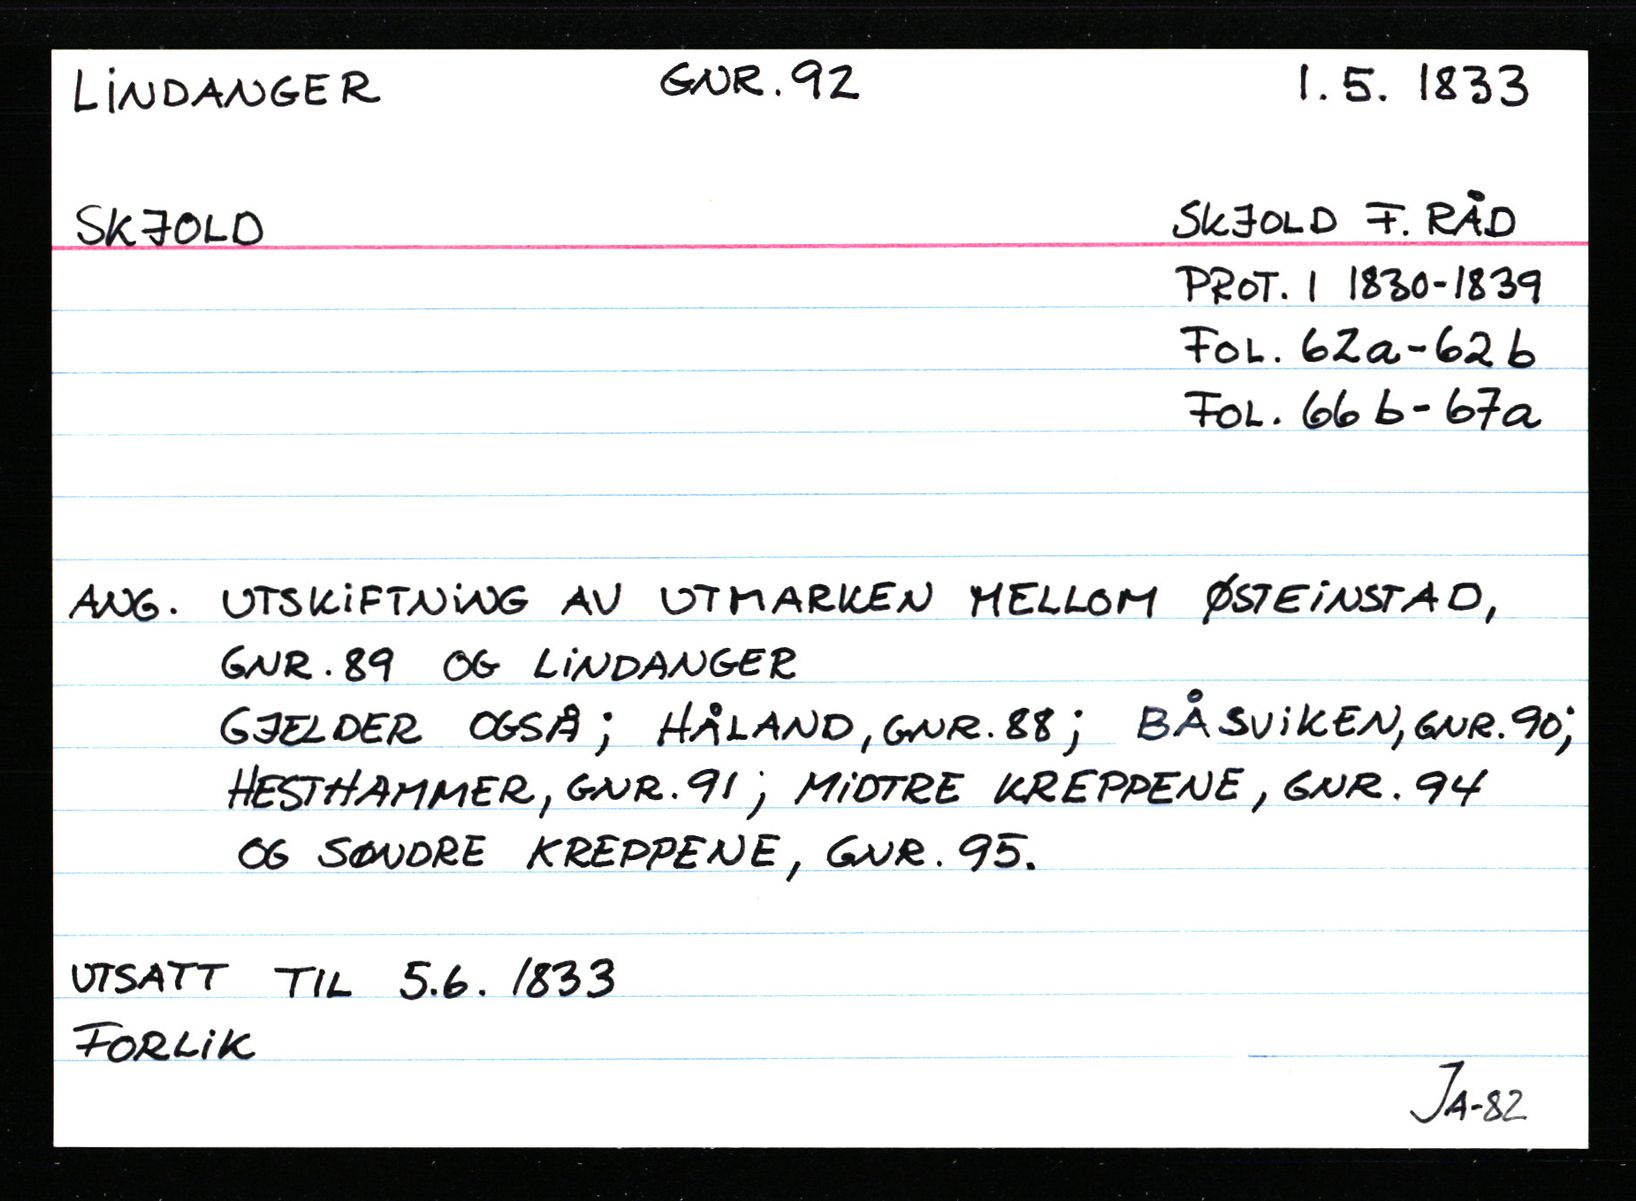 LINDANGER GNR. 92 1. 5. 1833
SKJOLD SKJOLD F. RÅD
PROT. 1 1830-1839
FOL. 62a-62b
FOL. 66b-67a
ANG. UTSKIFTNING AV UTMARKEN MELLOM ØSTEINSTAD,
GNR. 89 OG LINDANGER
GJELDER OGSÅ; HÅLAND, GNR. 88; BÅSVIKEN, GNR. 90;
HESTHAMMER, GNR. 91; MIDTRE KREPPENE, GNR. 94
OG SØNDRE KREPPENE, GNR. 95.
UTSATT TIL 5.6. 1833
FORLIK
JA-82